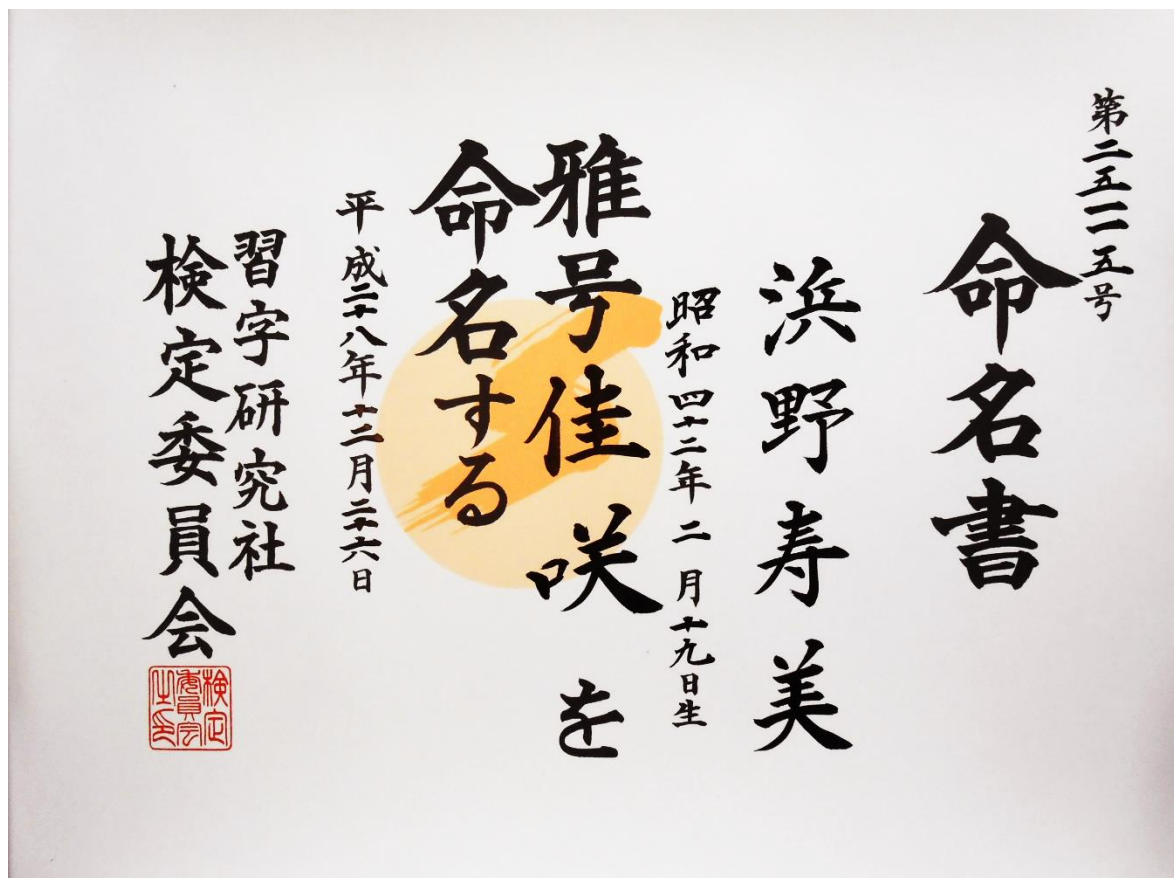 第二五一一五号
命名書
浜野寿美
昭和四十二年二月十九日生
雅号佳咲を
命名する
平成二十八年十二月二十六日
習字研究社
検定委員会
検定
委員会
之印